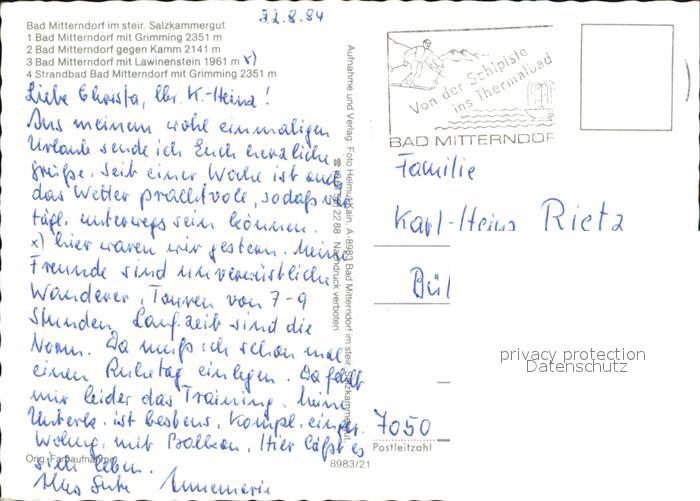 22.8.84
Bad Mitterndorf im steir. Salzkammergut
1 Bad Mitterndorf mit Grimming 2351 m
2 Bad Mitterndorf gegen Kamm 2141 m
3 Bad Mitterndorf mit Lawinenstein 1961 m x)
4 Strandbad Bad Mitterndorf mit Grimming 2351 m
Liebe Christa, lbr. K.-Heinz!
Aus meinem wohl einmaligen
Urlaub sende ich Euch herzliche
Grüße. Seit einer Woche ist auch
das Wetter prachtvoll, sodaß wir
tägl. unterwegs sein können.
x) hier waren wir gestern. Meine
Freunde sind unverwüstliche
Wanderer, Touren von 7-9
Stunden Laufzeit sind die
Norm. Da muß ich schon mal
einen Ruhetag einlegen. Da fehlt
mir leider das Training. Meine
Unterk. ist bestens, kompl. einger.
Wohng. mit Balkon. Hier läßt es
sich leben.
Alles Gute Annemarie
Orig.-Farbaufnahme
8983/21
Aufnahme und Verlag: Foto Helmut Rain, A-8983 Bad Mitterndorf im steir. Salzkammergut,
22 88 Nachdruck verboten
Von der Schipiste
ins Thermalbad
BAD MITTERNDORF
Familie
Karl-Heinz Rietz
Bül
7050
Postleitzahl
privacy protection
Datenschutz